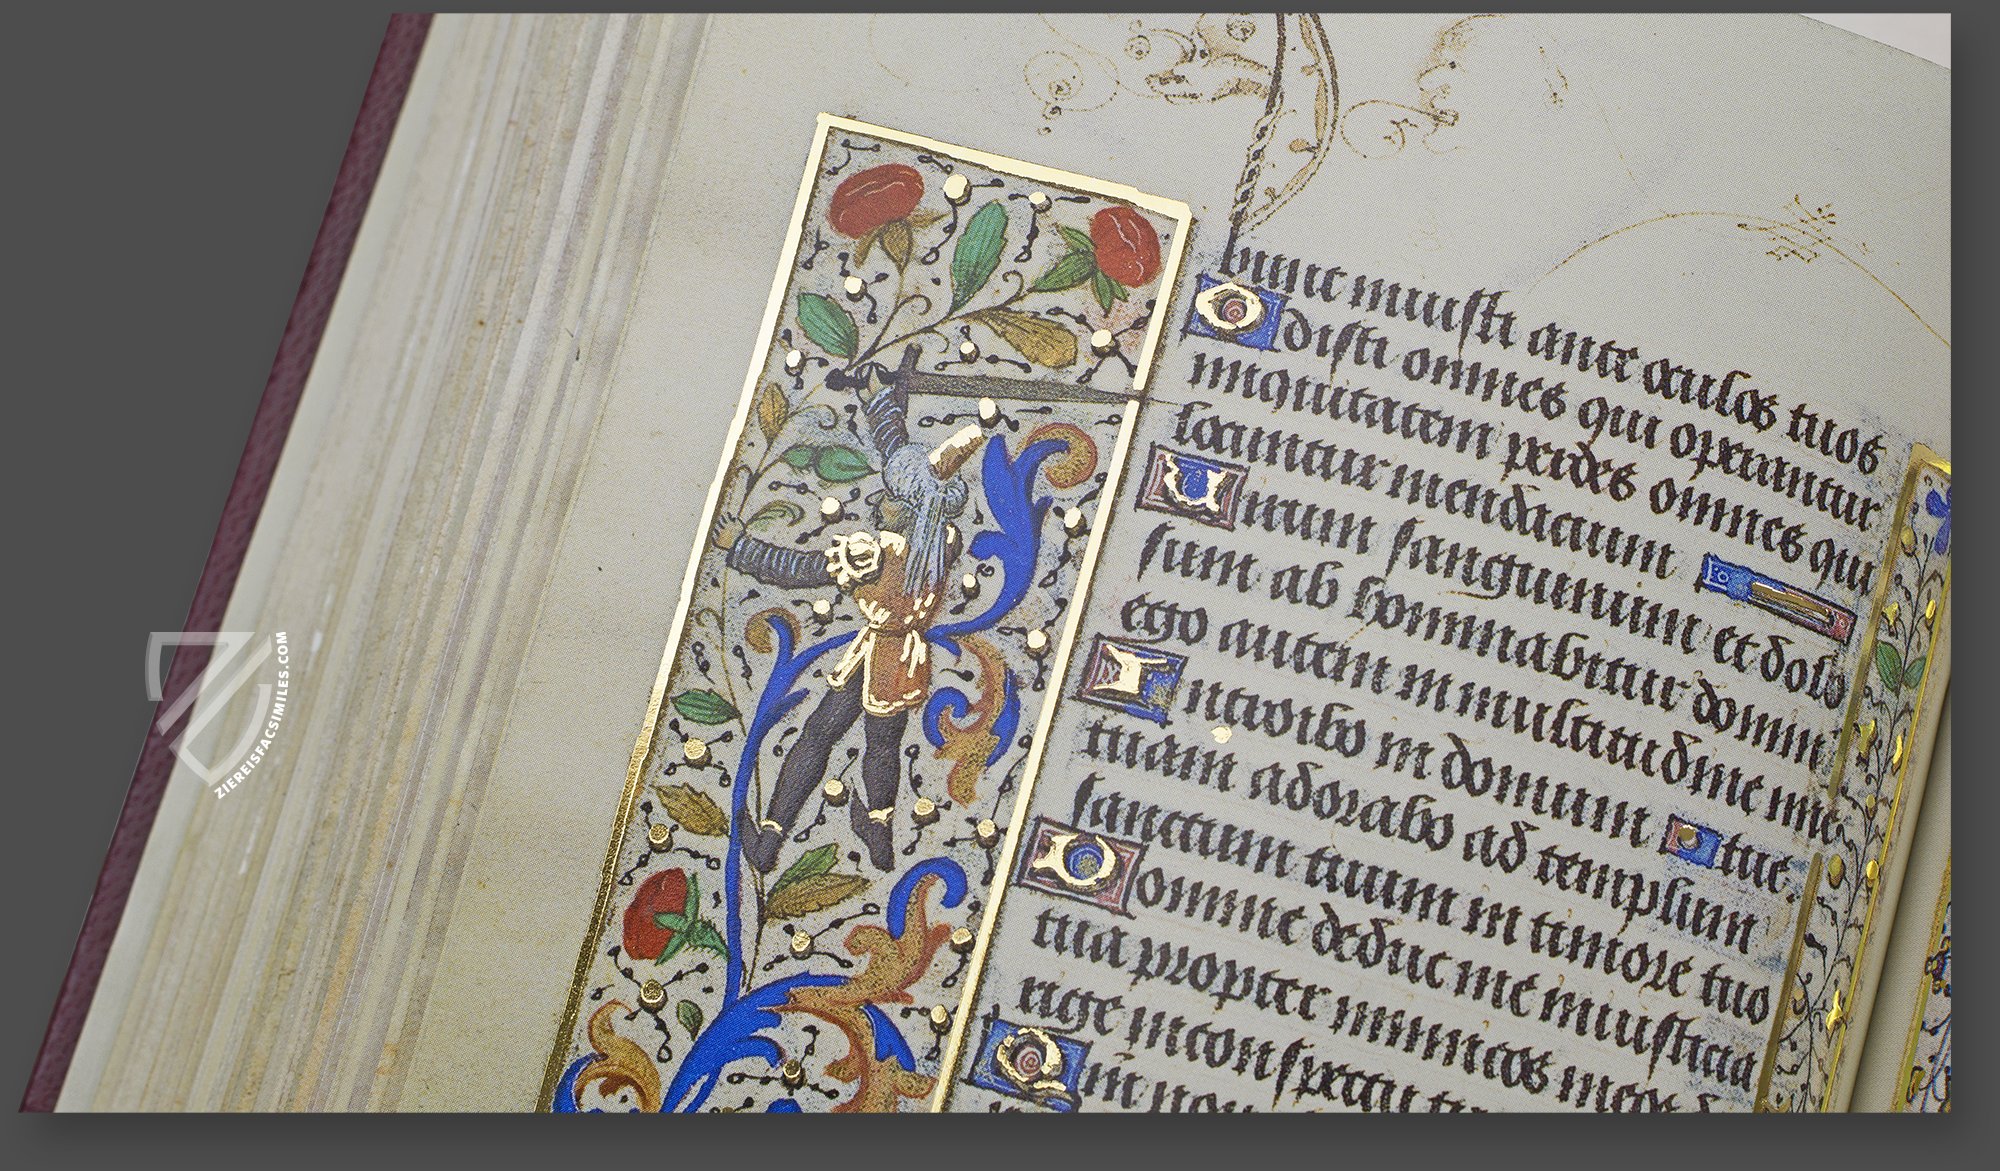 bunt iniusti ante oculos tuos
Odisti omnes qui operantur
iniquitatem perdes omnes qui
locuntur mendacium
Uirum sanguinum et dolo
sum ab hominabitur domin
ego autem in multitudine mie
Introibo in domum tue.
tuam adorabo ad templum
sanctum tuum in timore tuo
Domine deduc me in iusticia
tua propter inimicos meos
rige in conspectu
ZIEREISFACSIMILES.COM